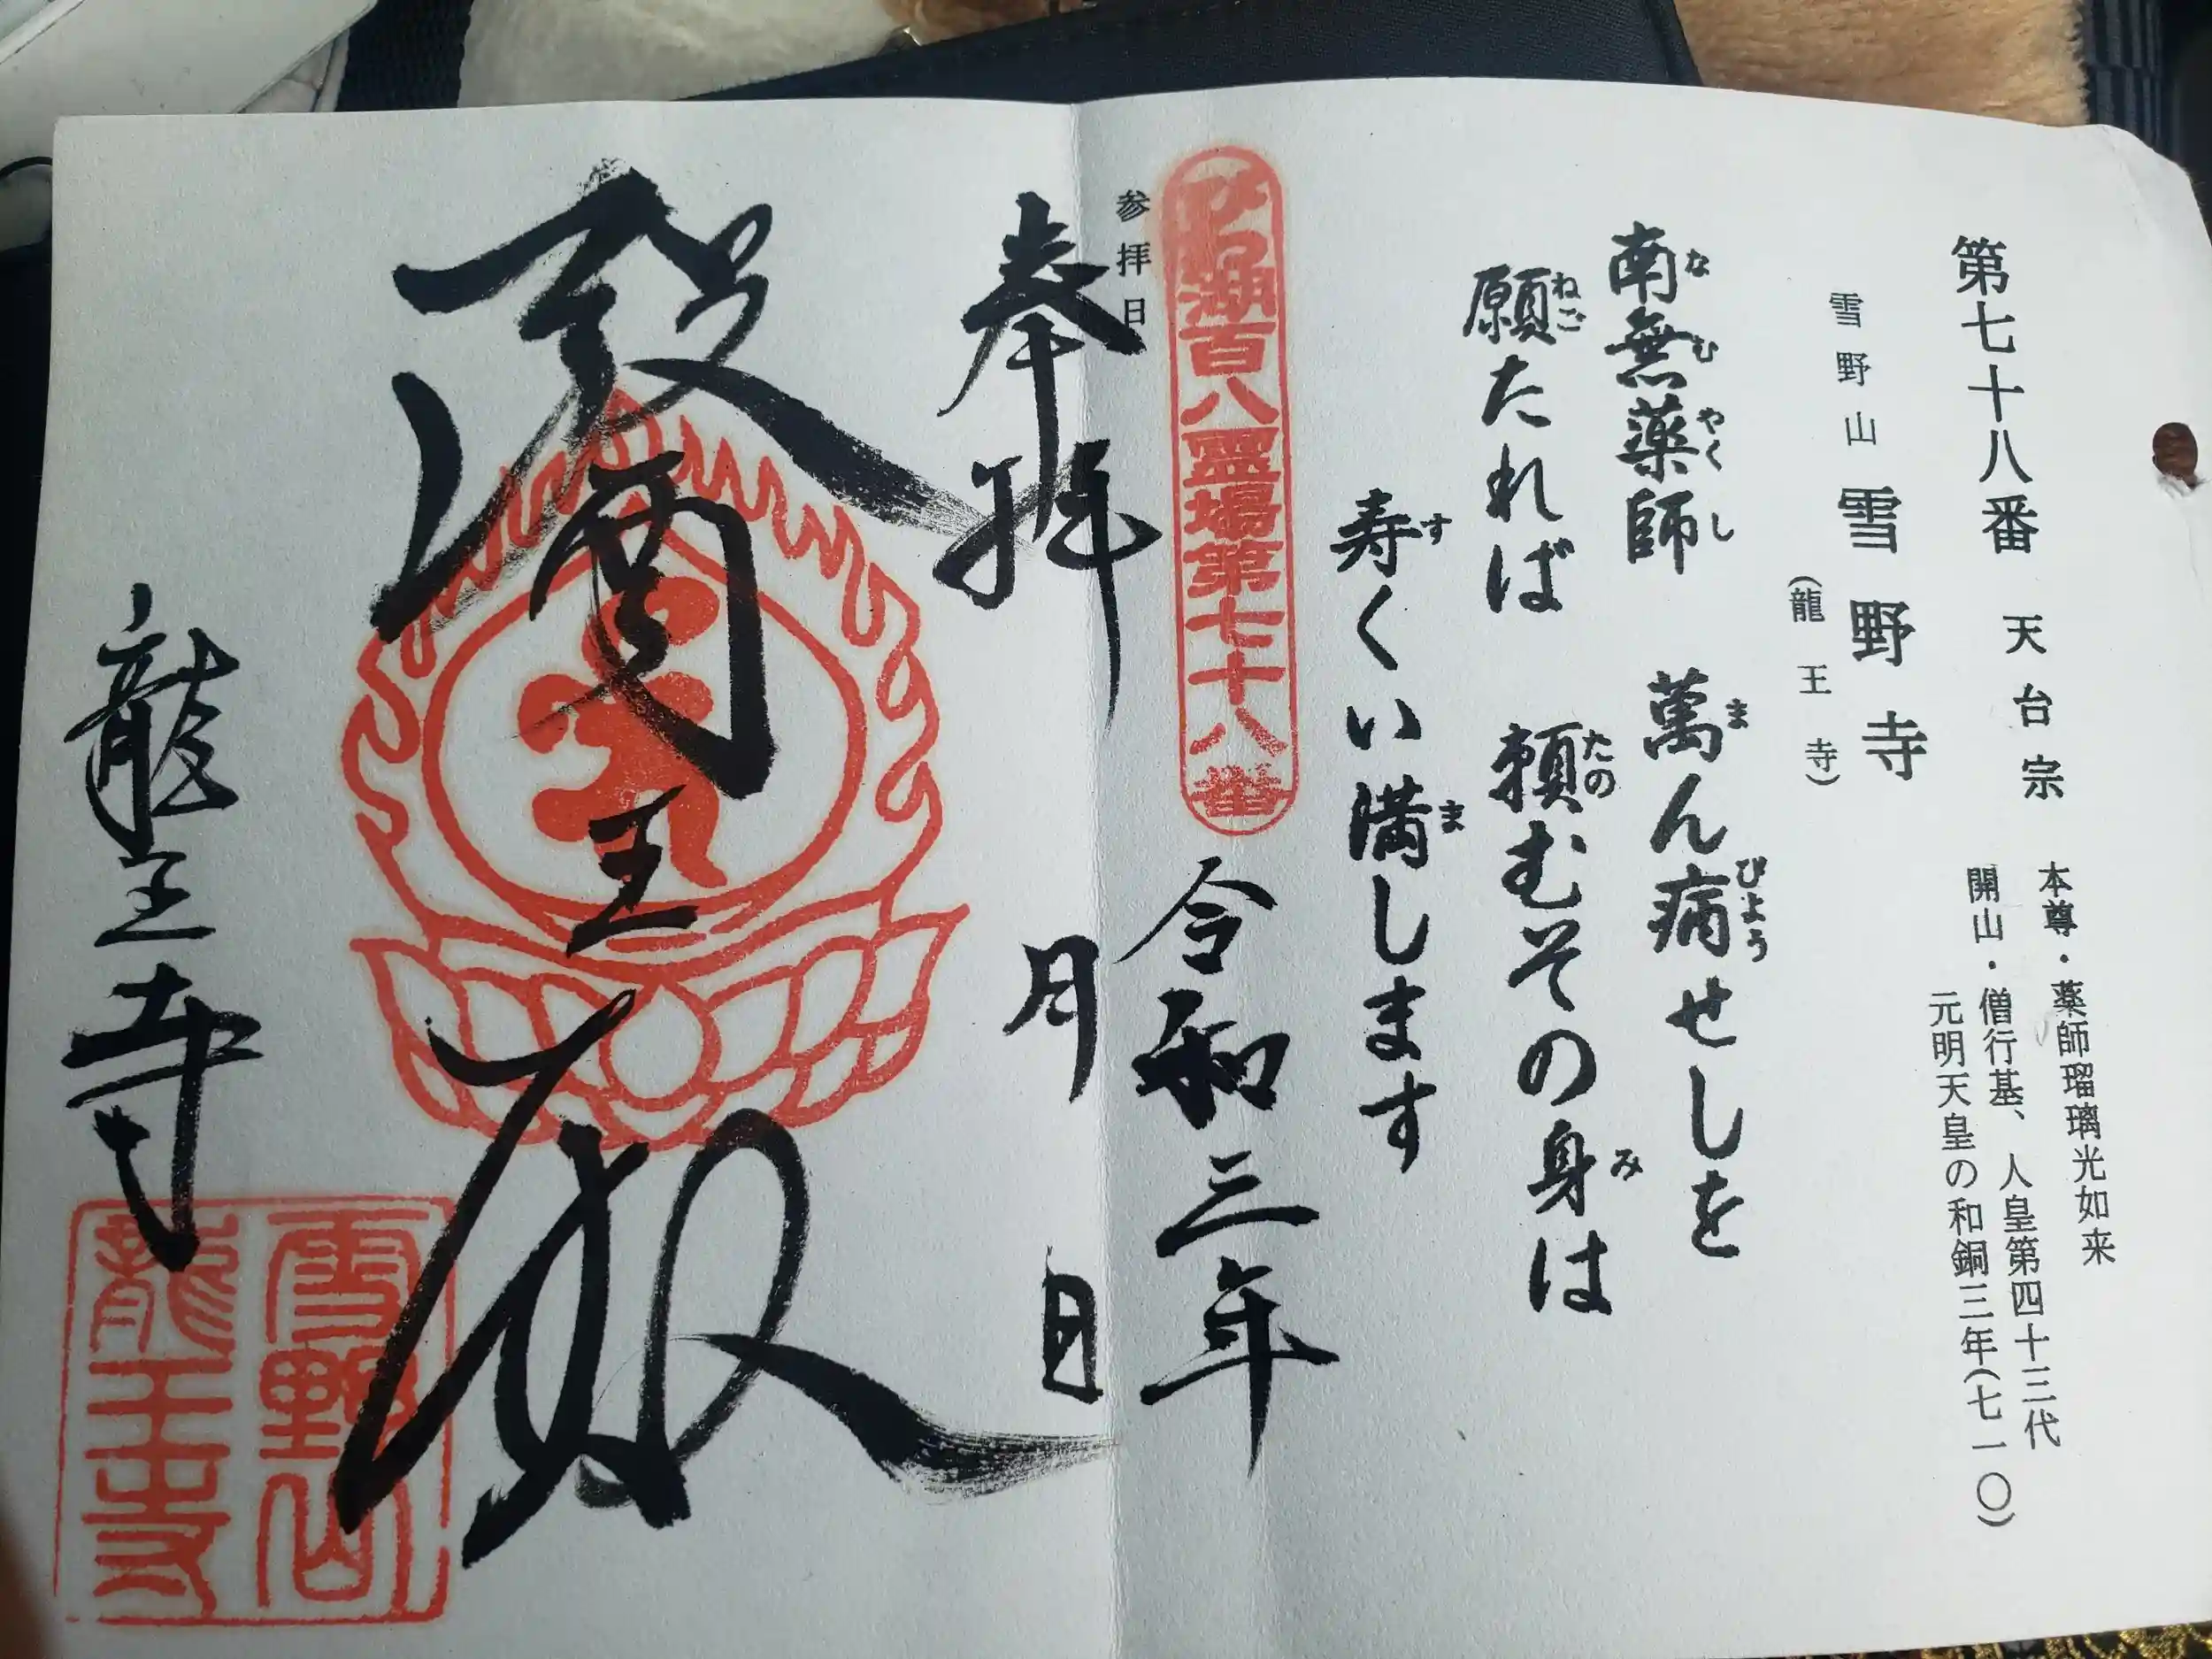 第七十八番 天台宗
本尊・薬師瑠璃光如来
開山・僧行基、人皇第四十三代
元明天皇の和銅三年(七一〇)
雪野山 雪野寺
(龍王寺)
南無薬師 萬ん病せしを
なむやくし まびょう
願たれば 頼むその身は
ねごたのみ
寿くい満します
すま
びわ湖百八霊場第七十八番
参拝日
令和三年
奉拝
月 日
醫王殿
龍王寺
雪野山
龍王寺